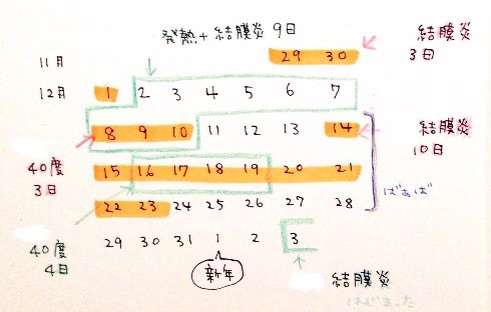 発熱+結膜炎 9日
結膜炎
3日
11月 29 30
12月 1 2 3 4 5 6 7
8 9 10 11 12 13 14
結膜炎
10日
40度
3日
15 16 17 18 19 20 21
ばぁば
22 23 24 25 26 27 28
40度
4日
29 30 31 1 2 3
新年
結膜炎
はじまった